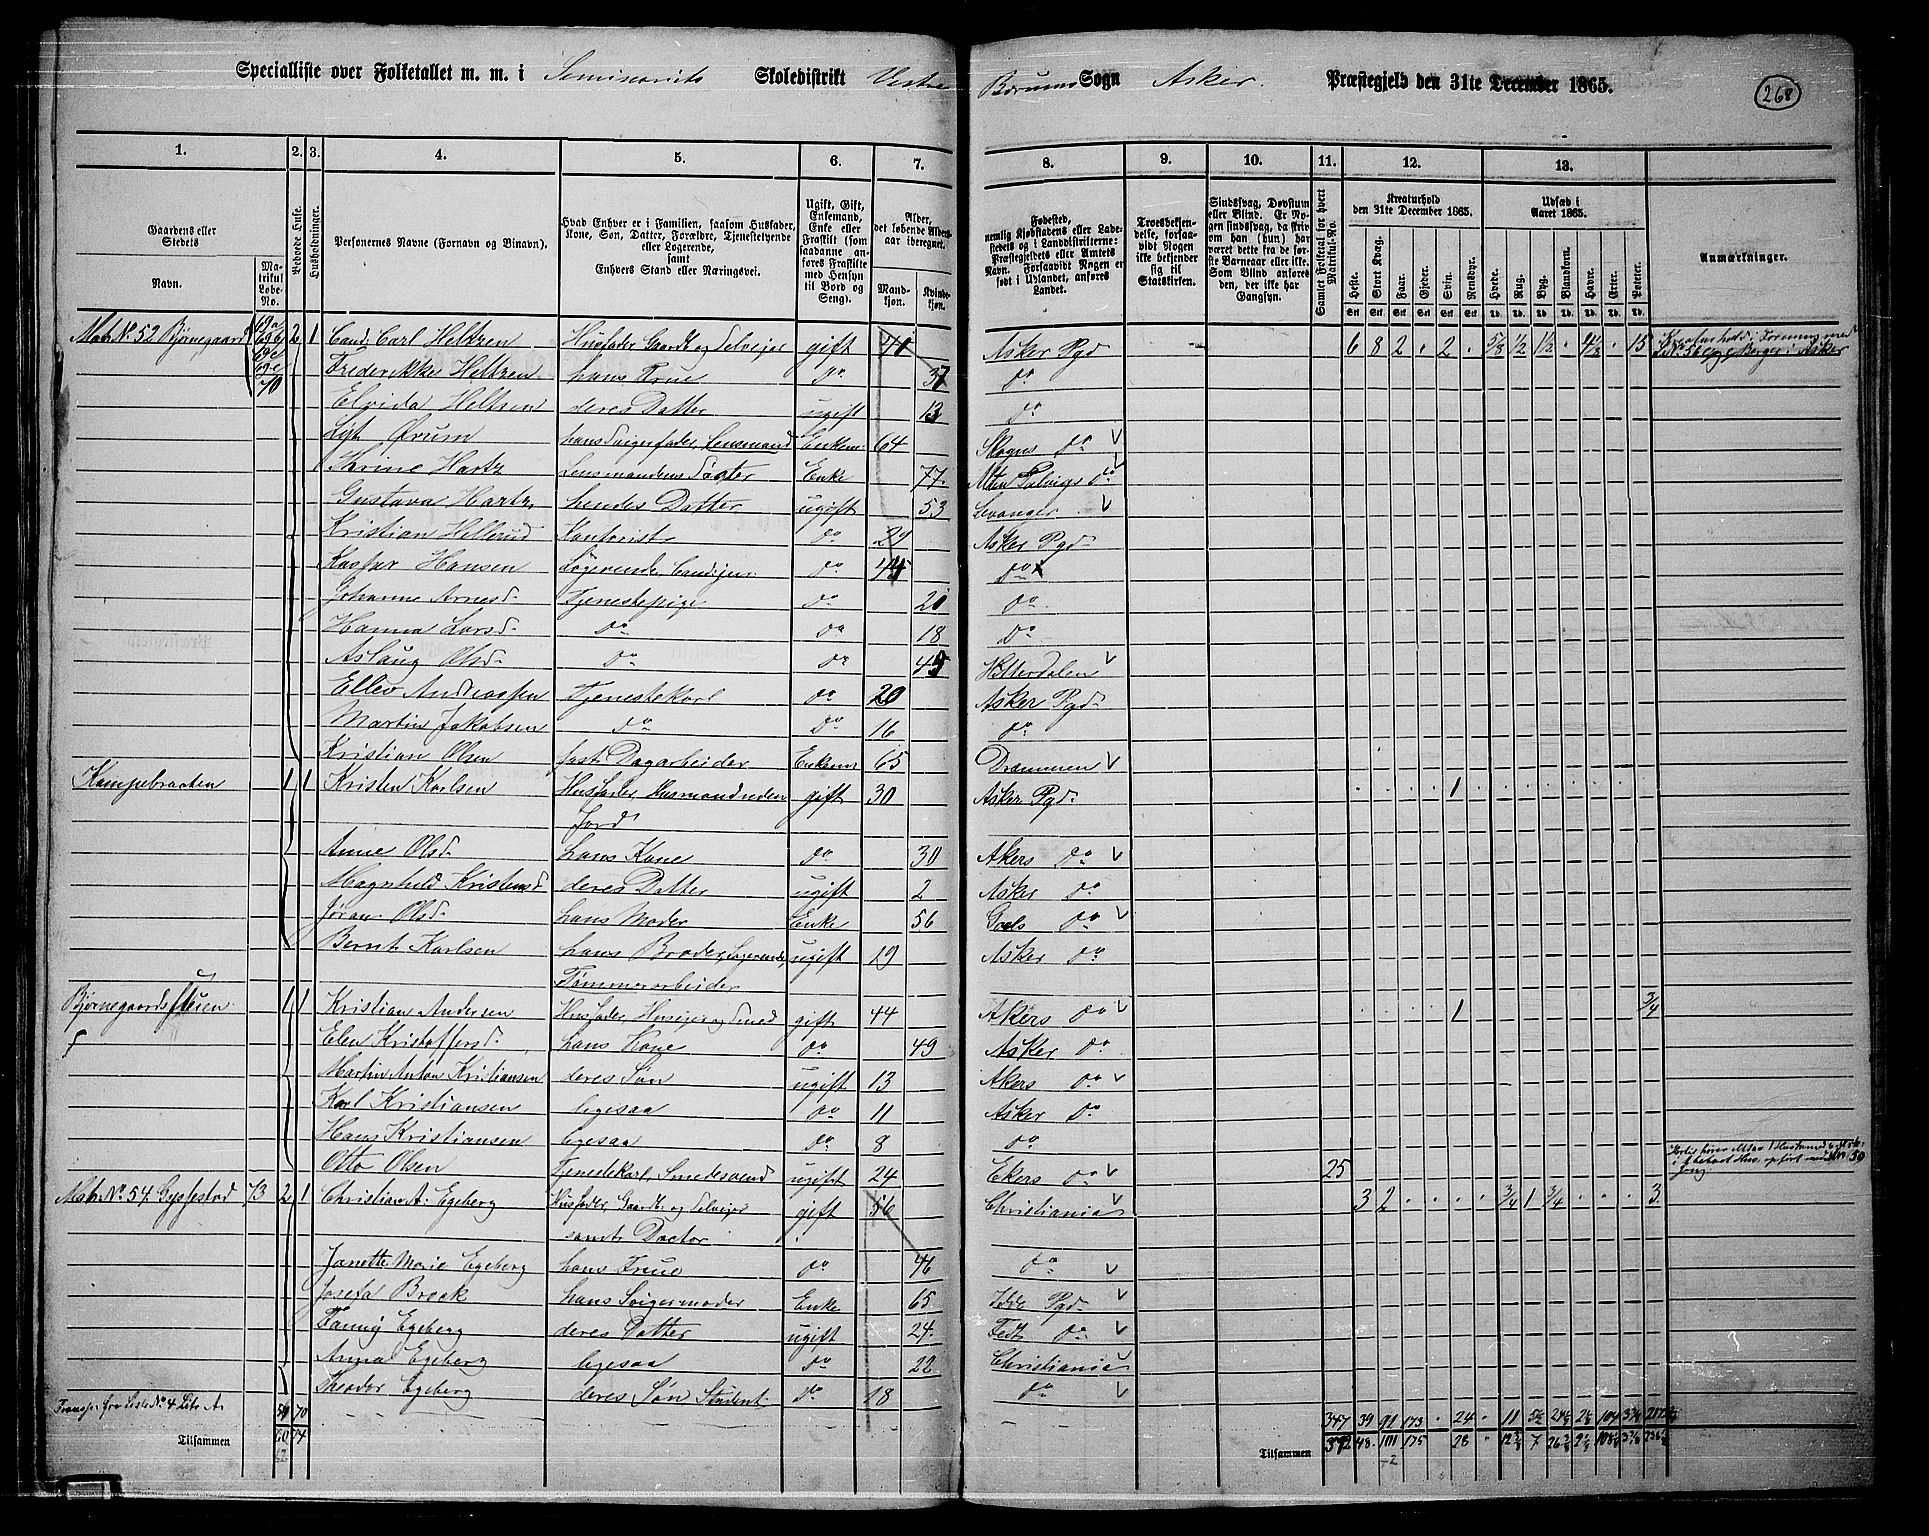 Specialliste over Folketallet m. m. i Seminariets Skoledistrikt Vestre Bærums Sogn Asker Præstegjeld den 31te December 1865.
268
1. 2. 3. 4. 5. 6. 7. 8. 9. 10. 11. 12. 13.
Gaardens eller Stedets Navn. Matrikul Løbe-No.
Beboede Huse.
Husholdninger.
Personernes Navne (Fornavn og Binavn).
Hvad Enhver er i Familien, saasom Husfader, Kone, Søn, Datter, Forældre, Tjenestetyende eller Logerende, samt Enhvers Stand eller Næringsvei.
Ugift, Gift, Enkemand, Enke eller Fraskilt (som saadanne anføres Fraskilte med Hensyn til Bord og Seng).
Alder, det løbende Alders-aar iberegnet. Mandkjøn. Kvindekjøn.
Fødested, nemlig Kjøbstadens eller Ladestedets og i Landdistrikterne: Præstegjeldets eller Amtets Navn. Forsaavidt Nogen er født i Udlandet, anføres Landet.
Troesbekjendelse, forsaavidt Nogen ikke bekjender sig til Statskirken.
Sindssvag, Døvstum eller Blind. Er Nogen sindssvag, da skrives om han (hun) har været dette fra de første Barneaar eller ikke. Som Blind anføres den, der ikke har Gangsyn.
Samlet Folketal for hvert Matrikul-No.
Kreaturhold den 31te December 1865. Heste. Stort Kvæg. Faar. Gjeder. Svin. Rensdyr.
Udsæd i Aaret 1865. Hvede. Rug. Byg. Blandkorn. Havre. Erter. Poteter.
Anmærkninger.
Matr. No. 52 Bjørnegaard 70 2 1 Cand. Carl Heltzen Husfader, Gaardb. og Selveier gift 41 Asker Pgd 6 8 2 . 2 . 5/8 1/2 1 1/2 . 4 1/2 . 15 Kreaturhold i Forening med
Frederikke Heltzen hans Frue do 37 do
Elvida Heltzen deres Datter ugift 13 do
Ørum hans Svigerfader, Lensmand Enkem. 64 Skogns do
Trine Hartz Lensmandens Søster Enke 77 do
Gustava Hartz hendes Datter ugift 53 Levanger
Kristian Hellerud Kontorist do 29 Asker Pgd
Kaspar Hansen Logerende, Cand. jur. do 45 do
Johanne Arnesd. Tjenestepige do 21 do
Hanna Larsd. do do 18 do
Aslaug Olsd. do do 45 Hitterdalen
Ellev Andreassen Tjenestekarl do 20 Asker Pgd
Martin Jakobsen do do 16 do
Kristian Olsen fast Dagarbeider Enkem 65 Drammen
Kampebraaten 1 1 Kristen Karlsen Husfader, Husmand uden gift 30 Asker Pgd . . . . 1 . . . . . . . .
Jord
Anne Olsd. hans Kone do 30 Akers do
Magnhild Kristensd. deres Datter ugift 2 Asker do
Jøran Olsd. hans Moder Enke 56 Gols do
Bernt Karlsen hans Broder, Logerende, ugift 19 Asker do
Tømmerarbeider
Bjørnegaardssveien 1 1 Kristian Andersen Husfader, Huseier og Smed gift 44 Akers do . . . . 1 . . . . . . . 3/4
Elen Kristoffersd. hans Kone do 49 Asker do
Martin Anton Kristiansen deres Søn ugift 13 Akers do
Karl Kristiansen ligesaa do 11 Asker do
Hans Kristiansen ligesaa do 8 do
Otto Olsen Tjenestekarl, Smedesvend ugift 24 Ekers do 25
Matr. No. 54 Gyssestad 73 2 1 Christian A. Egeberg Husfader, Gaardb. og Selveier gift 56 Christiania 3 2 . . . . 3/4 1 3/4 . . . 3
samt Doctor
Janette Marie Egeberg hans Frue do 46 do
Josefa Breek hans Svigermoder Enke 65 Idde Pgd
Fanny Egeberg deres Datter ugift 24 do
Anna Egeberg ligesaa do 22 Christiania
Theodor Egeberg deres Søn Student do 18 do
Transp. fra Liste No. 4 Litr A. 54 70 347 39 91 173 . 24 . 11
Tilsammen 74 Tilsammen 372 48 101 175 28